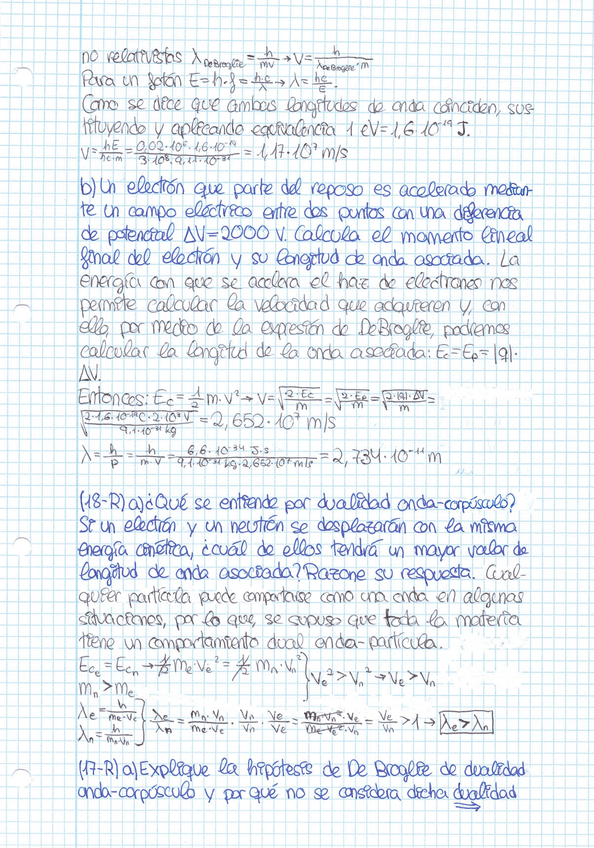 no relativistas λDeBroglie = h/mv → V = h/λDeBroglie·m
Para un fotón E=h·f = h·c/λ → λ = hc/E.
Como se dice que ambas longitudes de onda coinciden, sus-
tituyendo y aplicando equivalencia 1 eV = 1,6·10⁻¹⁹ J.
V = hE/hc·m = 0,02·10⁶·1,6·10⁻¹⁹/3·10⁸·9,11·10⁻³¹ = 1,17·10⁷ m/s
b) Un electrón que parte del reposo es acelerado median-
te un campo eléctrico entre dos puntos con una diferencia
de potencial ΔV=2000 V. Calcula el momento lineal
final del electrón y su longitud de onda asociada. La
energía con que se acelera el haz de electrones nos
permite calcular la velocidad que adquieren y, con
ello, por medio de la expresión de DeBroglie, podremos
calcular la longitud de la onda asociada: Ec=Ep=|q|·
ΔV.
Entonces: Ec = 1/2 m·V² → V = √(2·Ec/m) = √(2·Ep/m) = √(2·|q|·ΔV/m) =
√(2·1,6·10⁻¹⁹C·2·10³V/9,1·10⁻³¹ kg) = 2,652·10⁷ m/s
λ = h/p = h/m·V = 6,6·10⁻³⁴ J·s/9,1·10⁻³¹ kg·2,652·10⁷ m/s = 2,734·10⁻¹¹ m
(18-R) a) ¿Qué se entiende por dualidad onda-corpúsculo?
Si un electrón y un neutrón se desplazarán con la misma
energía cinética, ¿cuál de ellos tendrá un mayor valor de
longitud de onda asociada? Razone su respuesta. Cual-
quier partícula puede comportarse como una onda en algunas
situaciones, por lo que, se supuso que toda la materia
tiene un comportamiento dual onda-partícula.
Ece = Ecn → 1/2 me·Ve² = 1/2 mn·Vn² } Ve² > Vn² → Ve > Vn
mn > me
λe = h/me·Ve } λe/λn = mn·Vn/me·Ve · Vn/Vn · Ve/Ve = mn·Vn²·Ve/me·Ve²·Vn = Ve/Vn > 1 → λe > λn
λn = h/mn·Vn
(17-R) a) Explique la hipótesis de De Broglie de dualidad
onda-corpúsculo y por qué no se considera dicha dualidad